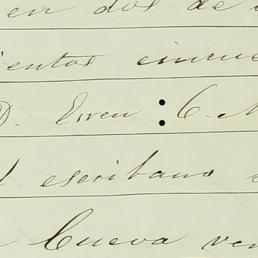 en dos de
ientos cincue
D. Erren : C. M
l escribano
Cueva ven